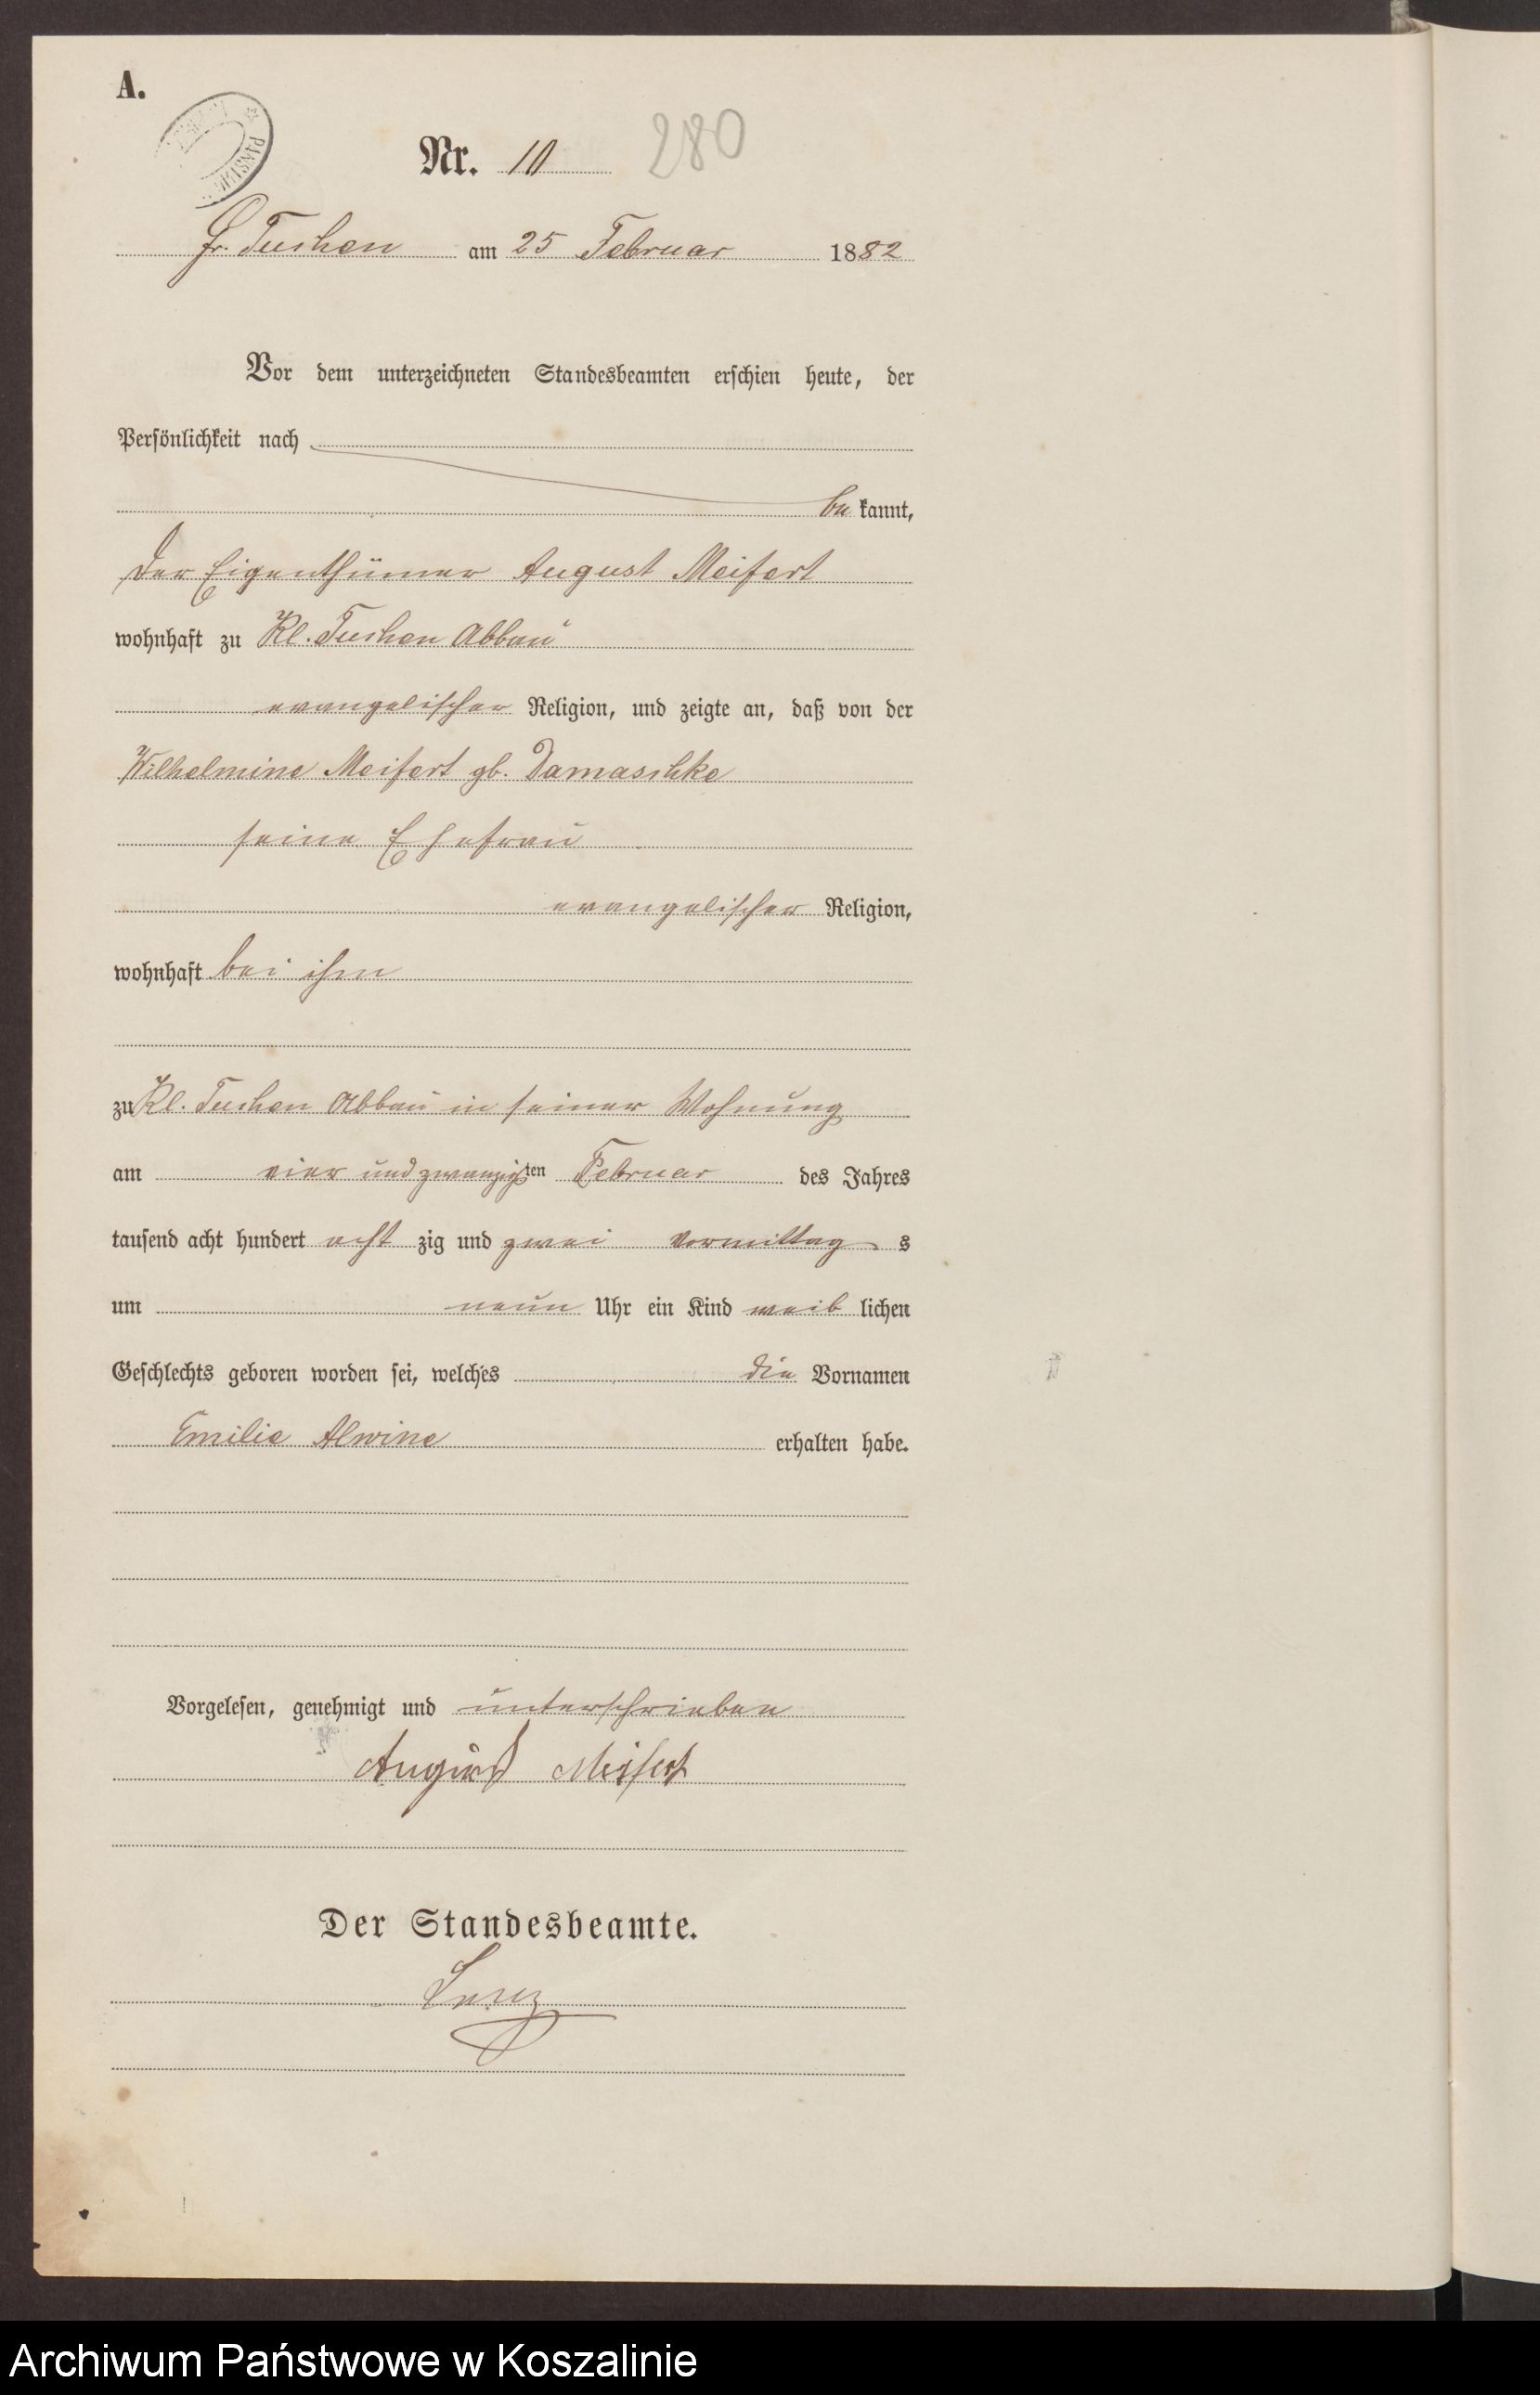 A.
PAŃSTW
Nr. 10 280
Gr. Tuchen am 25 Februar 1882
Vor dem unterzeichneten Standesbeamten erschien heute, der
Persönlichkeit nach
be kannt,
der Eigenthümer August Meifert
wohnhaft zu Kl. Tuchen Abbau
evangelischer Religion, und zeigte an, daß von der
Wilhelmine Meifert gb. Damaschke
seine Ehefrau
evangelischer Religion,
wohnhaft bei ihm
zu Kl. Tuchen Abbau in seiner Wohnung
am vier und zwanzigsten Februar des Jahres
tausend acht hundert acht zig und zwei Vormittag s
um neun Uhr ein Kind weib lichen
Geschlechts geboren worden sei, welches die Vornamen
Emilie Alwine erhalten habe.
Vorgelesen, genehmigt und unterschrieben
August Meifert
Der Standesbeamte.
Lenz
Archiwum Państwowe w Koszalinie